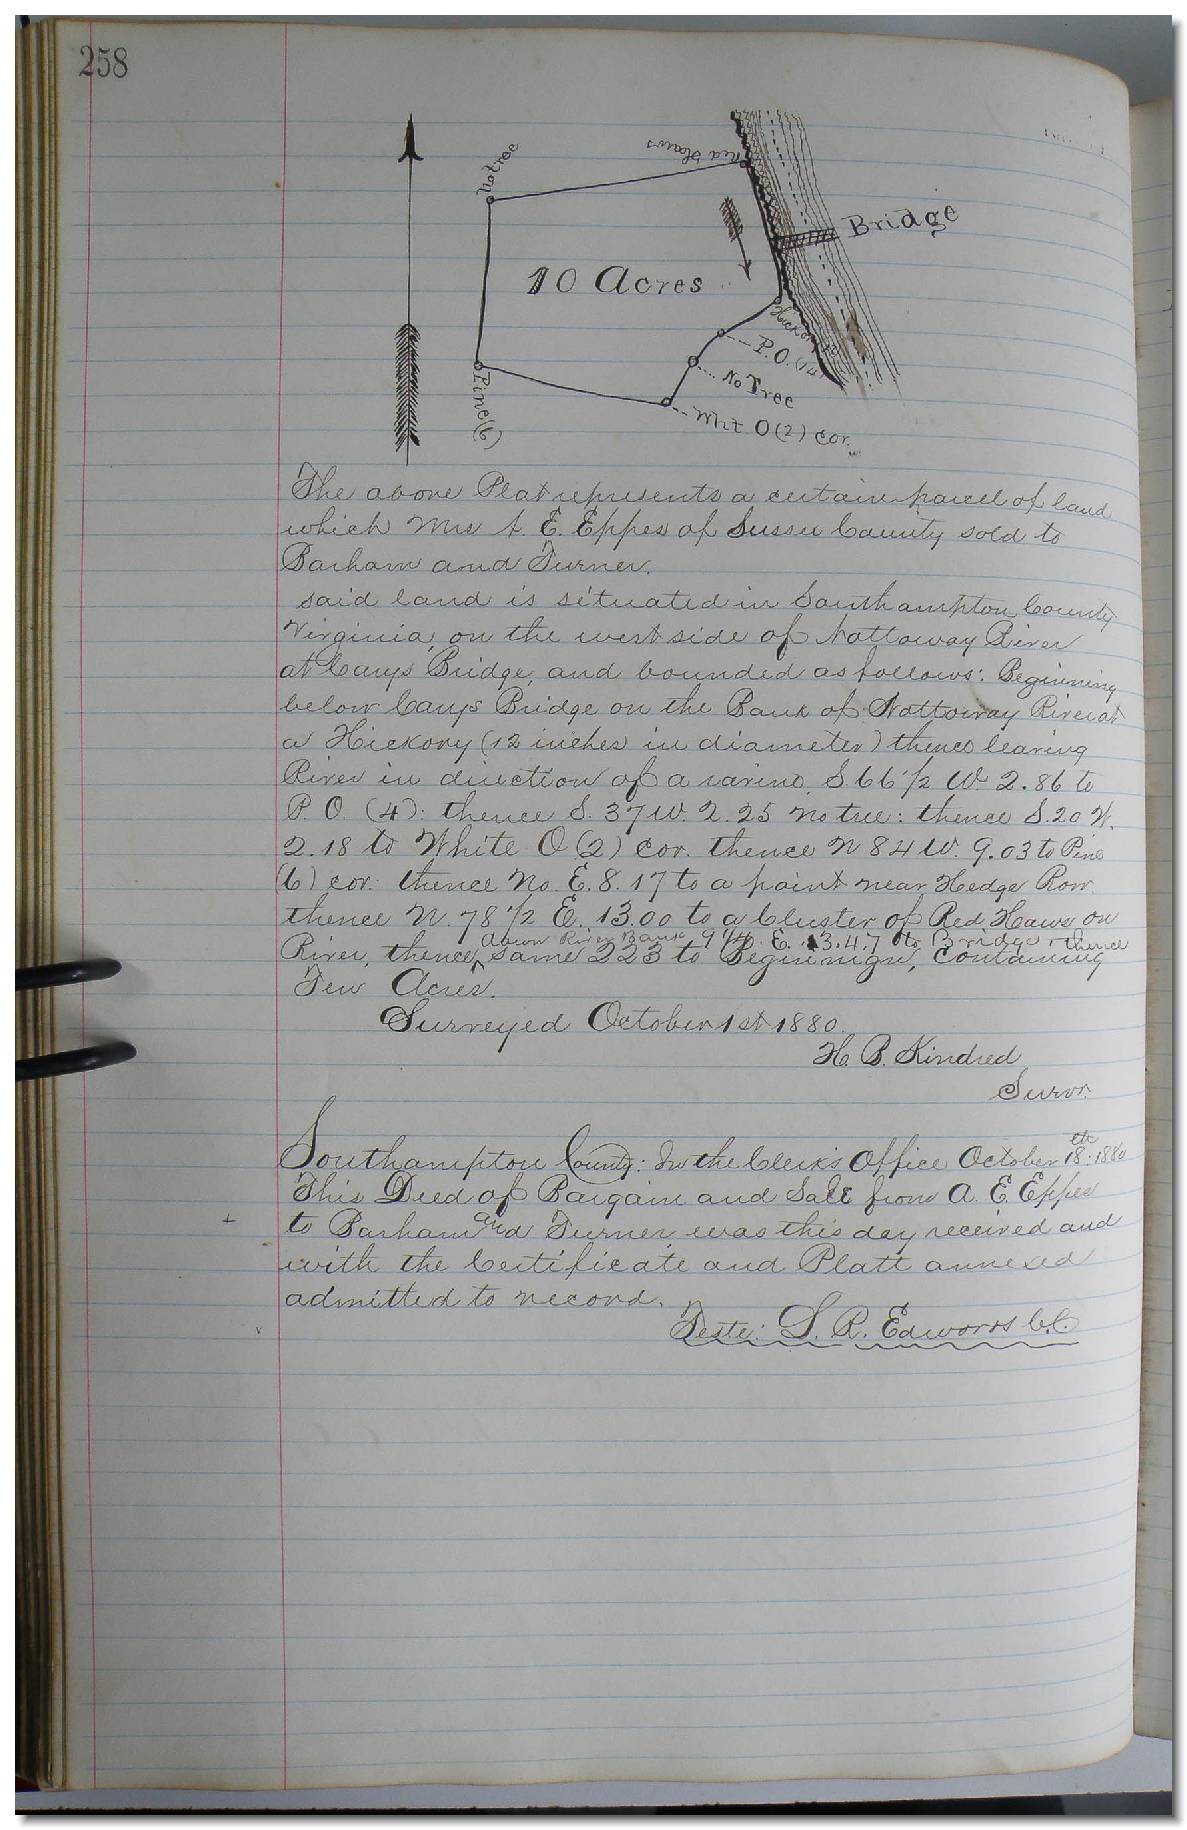 258
No tree
Red Haws
Bridge
10 Acres
Hickory
P.O. (14)
No Tree
Wht. O (2) cor.
Pine (6)
The above Plat represents a certain parcel of land
which Mrs A. E. Eppes of Sussex County sold to
Barham and Turner.
said land is situated in Southampton County
Virginia, on the west side of Nottoway River
at Carys Bridge, and bounded as follows: Beginning
below Carys Bridge on the Bank of Nottoway River at
a Hickory (12 inches in diameter) thence leaving
River in direction of a ravine S. 66 1/2 W 2.86 to
P. O (4): thence S. 37 W. 2.25 no tree: thence S. 20 W.
2.18 to White O (2) cor. thence N 84 W. 9.03 to Pine
(6) cor: thence No. E. 8.17 to a point near Hedge Row
thence N. 78 1/2 E. 13.00 to a Cluster of Red Haws on
down River Bank 9 1/4 E. 13.47 to Bridge thence
River, thence same 223 to Beginnign, Containing
Ten Acres.
Surveyed October 1st 1880.
H. B. Kindred
Survr.
Southampton County: In the Clerk's Office October 18th 1880
This Deed of Bargain and Sale from A. E. Eppes
to Barham and Turner was this day received and
with the Certificate and Platt annexed
admitted to record.
Teste: L. R. Edwards C.C.